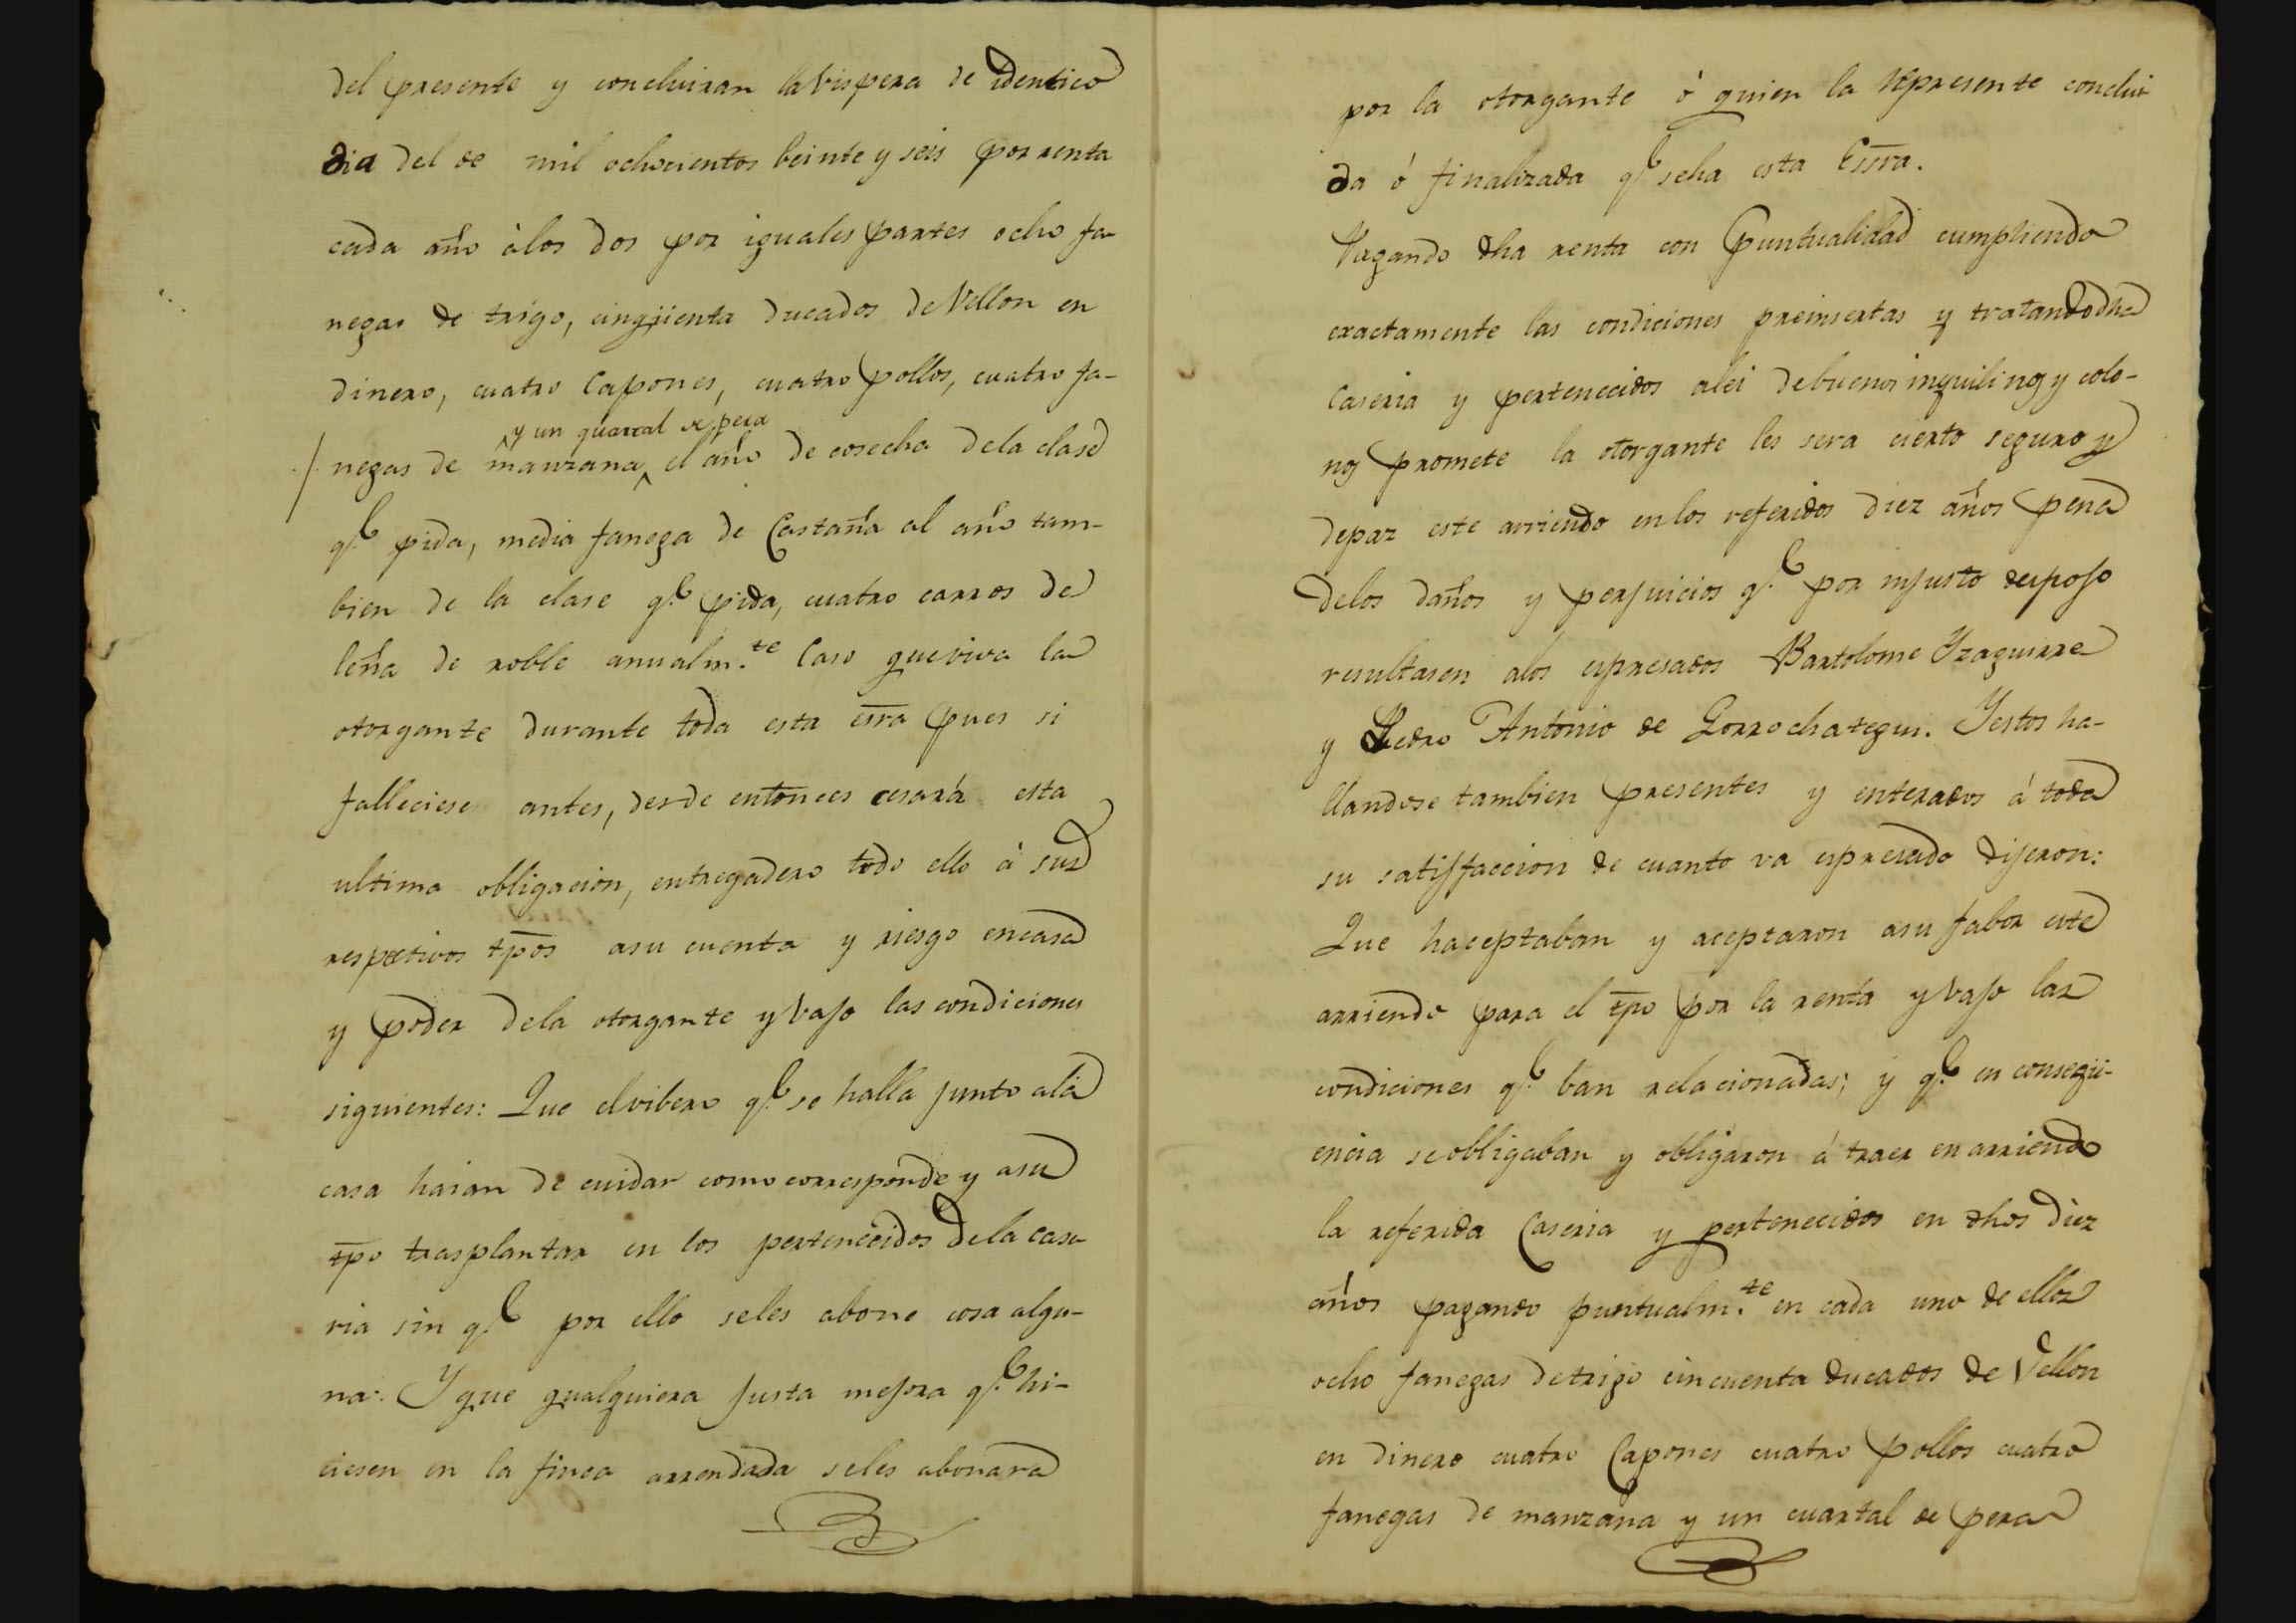 del presente y concluiran la Vispera de identico
dia del de mil ochocientos beinte y seis por renta
cada año à los dos por iguales partes ocho fa-
negas de trigo, cinqüenta ducados de Vellon en
dinero, cuatro Capones, cuatro pollos, cuatro fa-
y un quartal de pera
negas de manzana, el año de cosecha dela clase
q.e pida, media fanega de Castaña al año tam-
bien de la clase q.e pida, cuatro carros de
leña de roble anualm.te Caso que viva la
otorgante durante toda esta esra pues si
falleciese antes, desde entonces cesará esta
ultima obligacion, entregadero todo ello à sus
respectivos tpos asu cuenta y riesgo encasa
y poder dela otorgante y vajo las condiciones
siguientes: Que elvibero q.e se halla junto ala
casa haian de cuidar como corresponde y asu
tpo trasplantar en los pertenecidos dela case
ria sin q.e por ello seles abone cosa algu-
na: Y que qualquiera justa mejora q.e hi-
ciesen en la finca arrendada seles abonara
por la otorgante ó quien la represente conclui
da ó finalizada q.e seha esta Essra.
Pagando dha renta con Puntualidad cumpliendo
exactamente las condiciones preinsertas y tratando dha
Caseria y pertenecidos alei debuenos inquilinos y colo-
nos promete la otorgante les sera cierto seguro y
depaz este arriendo enlos referidos diez años pena
delos daños y perjuicios q.e por injusto despojo
resultasen alos espresados Bartolome Yzaguirre
y Pedro Antonio de Gorrochategui. Yestos ha-
llandose tambien presentes y enterados á toda
su satisfaccion de cuanto va espresado dijeron:
Que haceptaban y aceptaron asu fabor este
arriendo para el tpo por la renta y vajo las
condiciones q.e ban relacionadas; y q.e en conseqü-
encia seobligaban y obligáron á traer en arriendo
la referida Caseria y pertenecidos en dhos diez
años pagando puntualm.te en cada uno de ellos
ocho fanegas detrigo cincuenta ducados de Vellon
en dinero cuatro Capones cuatro pollos cuatro
fanegas de manzana y un cuartal de pera